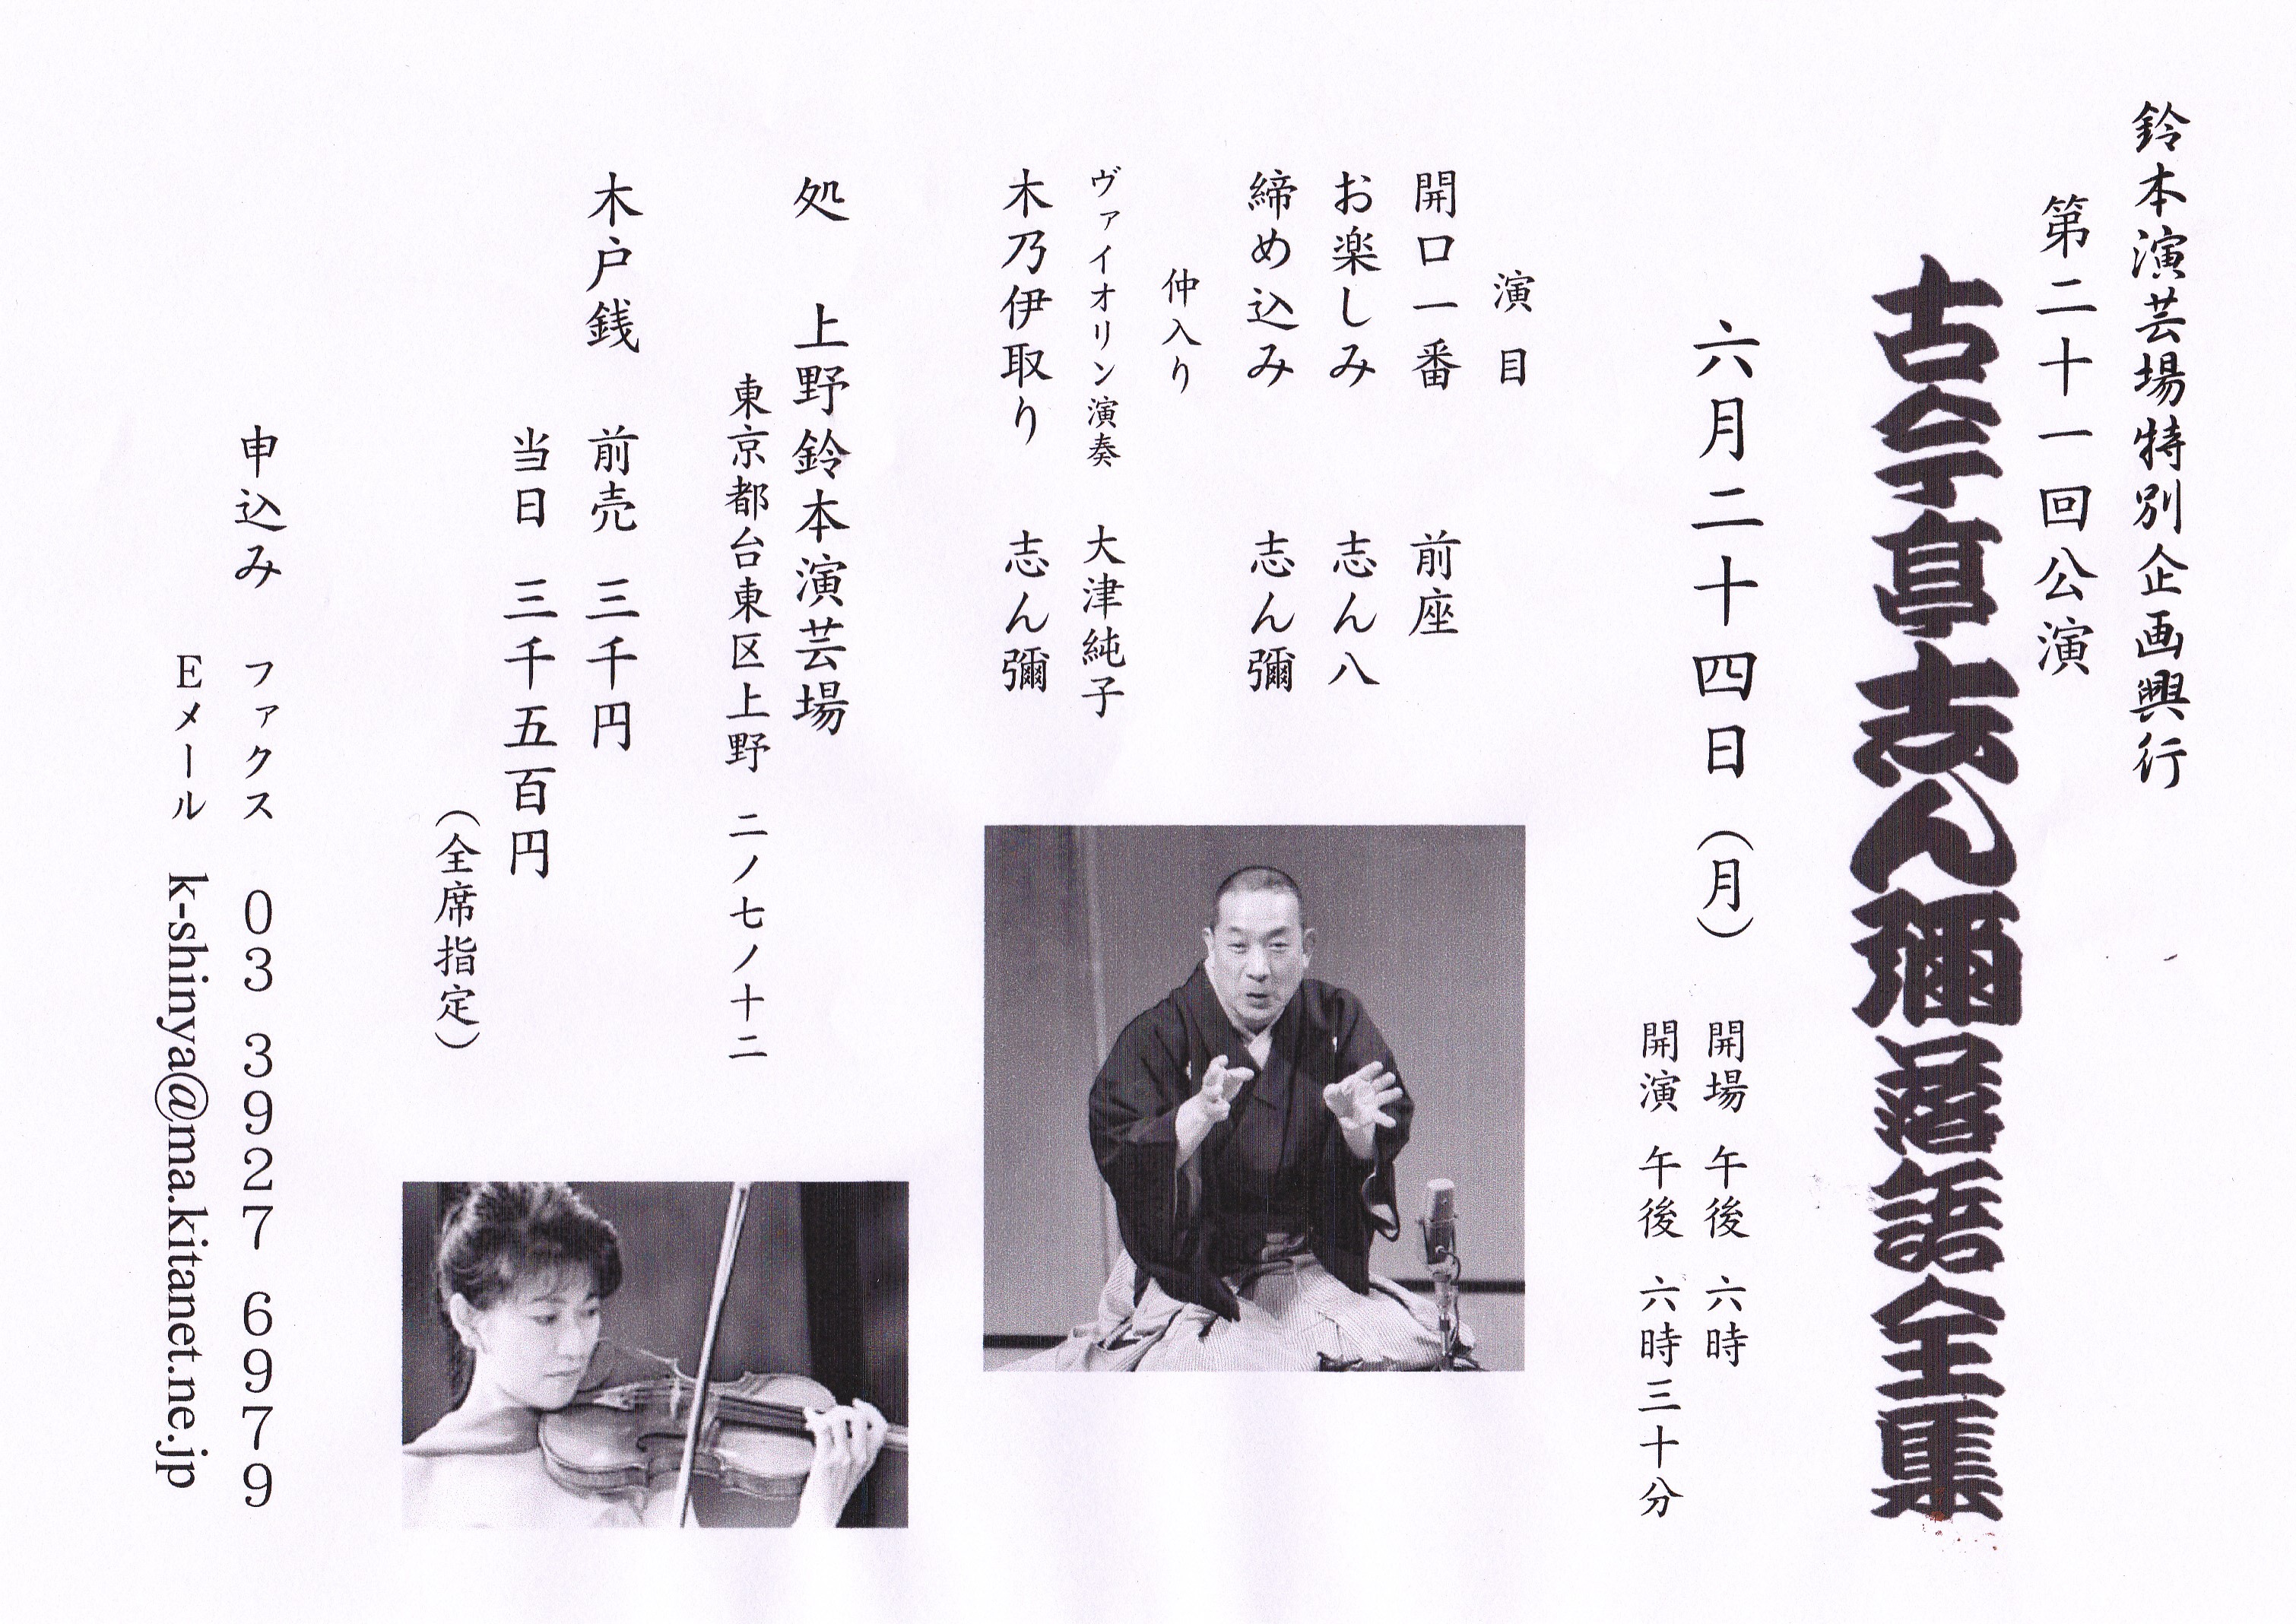 鈴本演芸場特別企画興行
第二十一回公演
古今亭志ん彌落語全集
六月二十四日（月）
開場 午後 六時
開演 午後 六時三十分
演目
開口一番 前座
お楽しみ 志ん八
締め込み 志ん彌
仲入り
ヴァイオリン演奏 大津純子
木乃伊取り 志ん彌
処 上野鈴本演芸場
東京都台東区上野 二ノ七ノ十二
木戸銭 前売 三千円
当日 三千五百円
（全席指定）
申込み ファクス 03 3927 6979
Eメール k-shinya@ma.kitanet.ne.jp